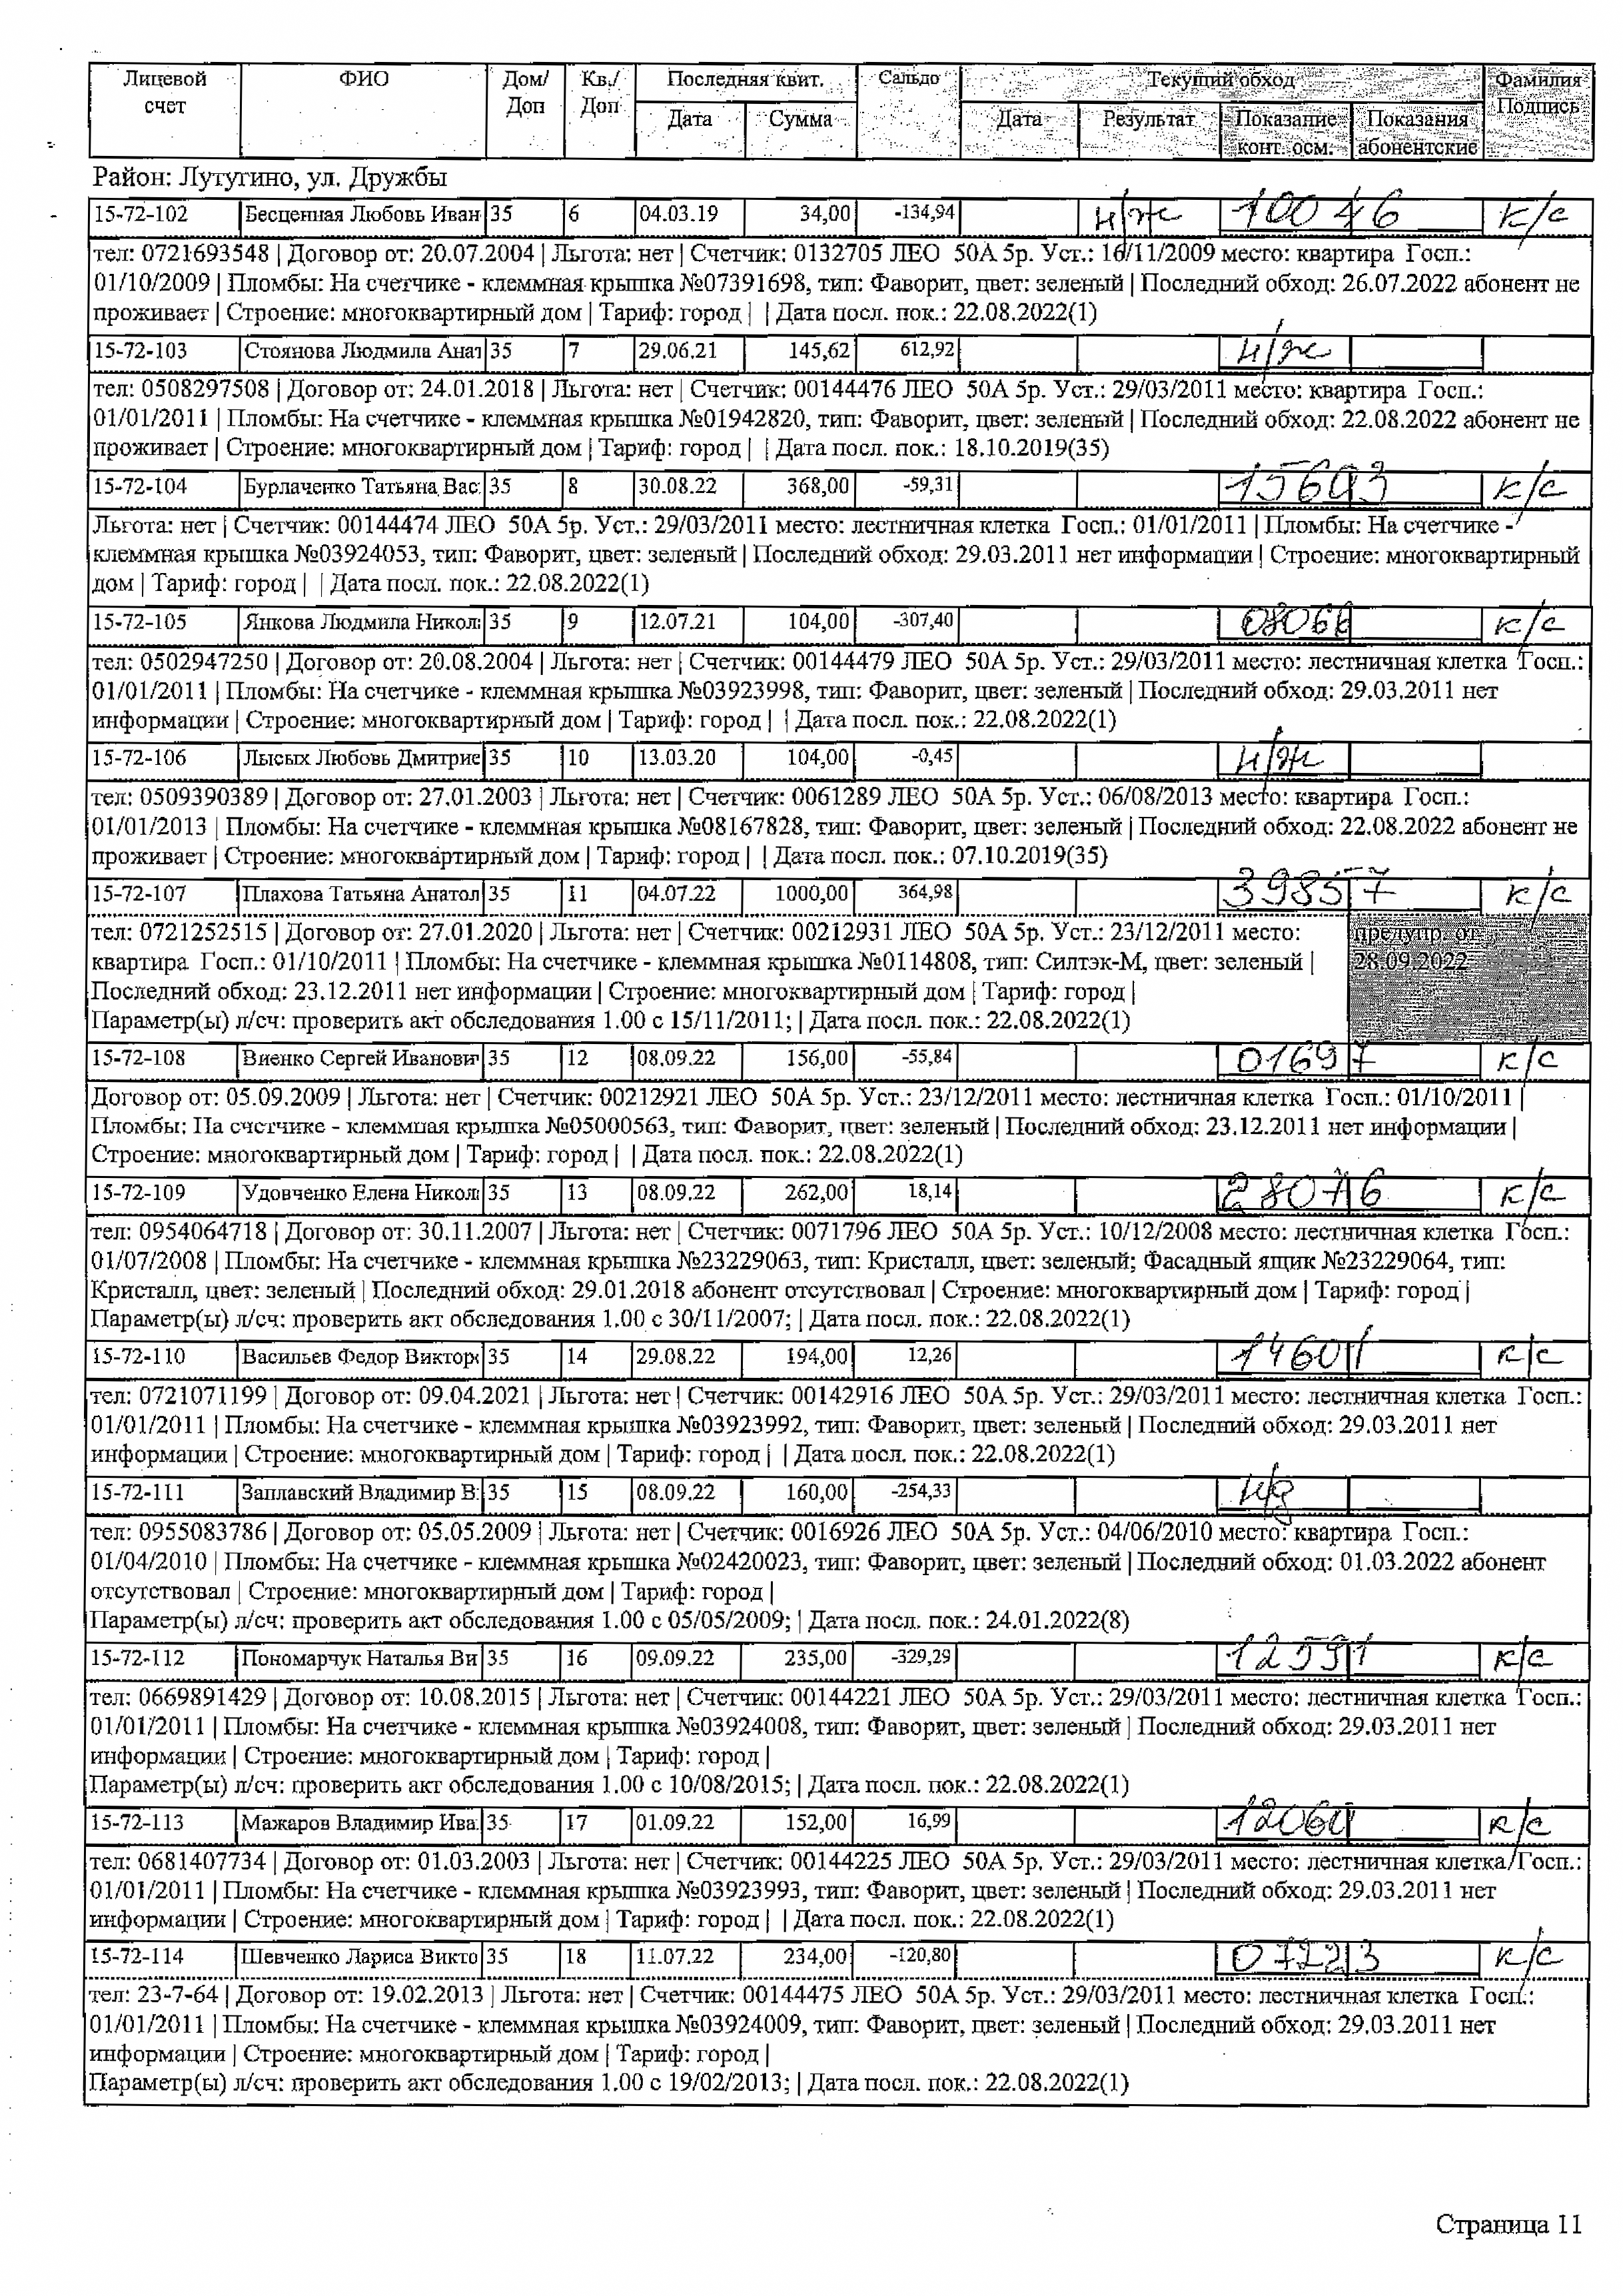 Лицевой счет ФИО Дом/Доп Кв./Доп Последняя квит. Сальдо Текущий обход Фамилия Подпись
Дата Сумма Дата Результат Показание конт. осм. Показания абонентские
Район: Лутугино, ул. Дружбы
15-72-102 Бесценная Любовь Иван 35 6 04.03.19 34,00 -134,94 н/ж 10046 к/с
тел: 0721693548 | Договор от: 20.07.2004 | Льгота: нет | Счетчик: 0132705 ЛЕО 50А 5р. Уст.: 16/11/2009 место: квартира Госп.:
01/10/2009 | Пломбы: На счетчике - клеммная крышка №07391698, тип: Фаворит, цвет: зеленый | Последний обход: 26.07.2022 абонент не
проживает | Строение: многоквартирный дом | Тариф: город | | Дата посл. пок.: 22.08.2022(1)
15-72-103 Стоянова Людмила Анат 35 7 29.06.21 145,62 612,92 н/ж
тел: 0508297508 | Договор от: 24.01.2018 | Льгота: нет | Счетчик: 00144476 ЛЕО 50А 5р. Уст.: 29/03/2011 место: квартира Госп.:
01/01/2011 | Пломбы: На счетчике - клеммная крышка №01942820, тип: Фаворит, цвет: зеленый | Последний обход: 22.08.2022 абонент не
проживает | Строение: многоквартирный дом | Тариф: город | | Дата посл. пок.: 18.10.2019(35)
15-72-104 Бурлаченко Татьяна Вас 35 8 30.08.22 368,00 -59,31 к/с
Льгота: нет | Счетчик: 00144474 ЛЕО 50А 5р. Уст.: 29/03/2011 место: лестничная клетка Госп.: 01/01/2011 | Пломбы: На счетчике -
клеммная крышка №03924053, тип: Фаворит, цвет: зеленый | Последний обход: 29.03.2011 нет информации | Строение: многоквартирный
дом | Тариф: город | | Дата посл. пок.: 22.08.2022(1)
15-72-105 Янкова Людмила Никол 35 9 12.07.21 104,00 -307,40 08066 к/с
тел: 0502947250 | Договор от: 20.08.2004 | Льгота: нет | Счетчик: 00144479 ЛЕО 50А 5р. Уст.: 29/03/2011 место: лестничная клетка Госп.:
01/01/2011 | Пломбы: На счетчике - клеммная крышка №03923998, тип: Фаворит, цвет: зеленый | Последний обход: 29.03.2011 нет
информации | Строение: многоквартирный дом | Тариф: город | | Дата посл. пок.: 22.08.2022(1)
15-72-106 Лысых Любовь Дмитрие 35 10 13.03.20 104,00 -0,45 н/ж
тел: 0509390389 | Договор от: 27.01.2003 | Льгота: нет | Счетчик: 0061289 ЛЕО 50А 5р. Уст.: 06/08/2013 место: квартира Госп.:
01/01/2013 | Пломбы: На счетчике - клеммная крышка №08167828, тип: Фаворит, цвет: зеленый | Последний обход: 22.08.2022 абонент не
проживает | Строение: многоквартирный дом | Тариф: город | | Дата посл. пок.: 07.10.2019(35)
15-72-107 Плахова Татьяна Анатол 35 11 04.07.22 1000,00 364,98 39857 к/с
тел: 0721252515 | Договор от: 27.01.2020 | Льгота: нет | Счетчик: 00212931 ЛЕО 50А 5р. Уст.: 23/12/2011 место: предупр. от
квартира Госп.: 01/10/2011 | Пломбы: На счетчике - клеммная крышка №0114808, тип: Силтэк-М, цвет: зеленый | 28.09.2022
Последний обход: 23.12.2011 нет информации | Строение: многоквартирный дом | Тариф: город |
Параметр(ы) л/сч: проверить акт обследования 1.00 с 15/11/2011; | Дата посл. пок.: 22.08.2022(1)
15-72-108 Виенко Сергей Иванови 35 12 08.09.22 156,00 -55,84 01697 к/с
Договор от: 05.09.2009 | Льгота: нет | Счетчик: 00212921 ЛЕО 50А 5р. Уст.: 23/12/2011 место: лестничная клетка Госп.: 01/10/2011 |
Пломбы: На счетчике - клеммная крышка №05000563, тип: Фаворит, цвет: зеленый | Последний обход: 23.12.2011 нет информации |
Строение: многоквартирный дом | Тариф: город | | Дата посл. пок.: 22.08.2022(1)
15-72-109 Удовченко Елена Никол 35 13 08.09.22 262,00 18,14 28076 к/с
тел: 0954064718 | Договор от: 30.11.2007 | Льгота: нет | Счетчик: 0071796 ЛЕО 50А 5р. Уст.: 10/12/2008 место: лестничная клетка Госп.:
01/07/2008 | Пломбы: На счетчике - клеммная крышка №23229063, тип: Кристалл, цвет: зеленый; Фасадный ящик №23229064, тип:
Кристалл, цвет: зеленый | Последний обход: 29.01.2018 абонент отсутствовал | Строение: многоквартирный дом | Тариф: город |
Параметр(ы) л/сч: проверить акт обследования 1.00 с 30/11/2007; | Дата посл. пок.: 22.08.2022(1)
15-72-110 Васильев Федор Виктор 35 14 29.08.22 194,00 12,26 14601 к/с
тел: 0721071199 | Договор от: 09.04.2021 | Льгота: нет | Счетчик: 00142916 ЛЕО 50А 5р. Уст.: 29/03/2011 место: лестничная клетка Госп.:
01/01/2011 | Пломбы: На счетчике - клеммная крышка №03923992, тип: Фаворит, цвет: зеленый | Последний обход: 29.03.2011 нет
информации | Строение: многоквартирный дом | Тариф: город | | Дата посл. пок.: 22.08.2022(1)
15-72-111 Заплавский Владимир В 35 15 08.09.22 160,00 -254,33 н/д
тел: 0955083786 | Договор от: 05.05.2009 | Льгота: нет | Счетчик: 0016926 ЛЕО 50А 5р. Уст.: 04/06/2010 место: квартира Госп.:
01/04/2010 | Пломбы: На счетчике - клеммная крышка №02420023, тип: Фаворит, цвет: зеленый | Последний обход: 01.03.2022 абонент
отсутствовал | Строение: многоквартирный дом | Тариф: город |
Параметр(ы) л/сч: проверить акт обследования 1.00 с 05/05/2009; | Дата посл. пок.: 24.01.2022(8)
15-72-112 Пономарчук Наталья Ви 35 16 09.09.22 235,00 -329,29 12591 к/с
тел: 0669891429 | Договор от: 10.08.2015 | Льгота: нет | Счетчик: 00144221 ЛЕО 50А 5р. Уст.: 29/03/2011 место: лестничная клетка Госп.:
01/01/2011 | Пломбы: На счетчике - клеммная крышка №03924008, тип: Фаворит, цвет: зеленый | Последний обход: 29.03.2011 нет
информации | Строение: многоквартирный дом | Тариф: город |
Параметр(ы) л/сч: проверить акт обследования 1.00 с 10/08/2015; | Дата посл. пок.: 22.08.2022(1)
15-72-113 Мажаров Владимир Ива 35 17 01.09.22 152,00 16,99 к/с
тел: 0681407734 | Договор от: 01.03.2003 | Льгота: нет | Счетчик: 00144225 ЛЕО 50А 5р. Уст.: 29/03/2011 место: лестничная клетка Госп.:
01/01/2011 | Пломбы: На счетчике - клеммная крышка №03923993, тип: Фаворит, цвет: зеленый | Последний обход: 29.03.2011 нет
информации | Строение: многоквартирный дом | Тариф: город | | Дата посл. пок.: 22.08.2022(1)
15-72-114 Шевченко Лариса Викто 35 18 11.07.22 234,00 -120,80 07223 к/с
тел: 23-7-64 | Договор от: 19.02.2013 | Льгота: нет | Счетчик: 00144475 ЛЕО 50А 5р. Уст.: 29/03/2011 место: лестничная клетка Госп.:
01/01/2011 | Пломбы: На счетчике - клеммная крышка №03924009, тип: Фаворит, цвет: зеленый | Последний обход: 29.03.2011 нет
информации | Строение: многоквартирный дом | Тариф: город |
Параметр(ы) л/сч: проверить акт обследования 1.00 с 19/02/2013; | Дата посл. пок.: 22.08.2022(1)
Страница 11